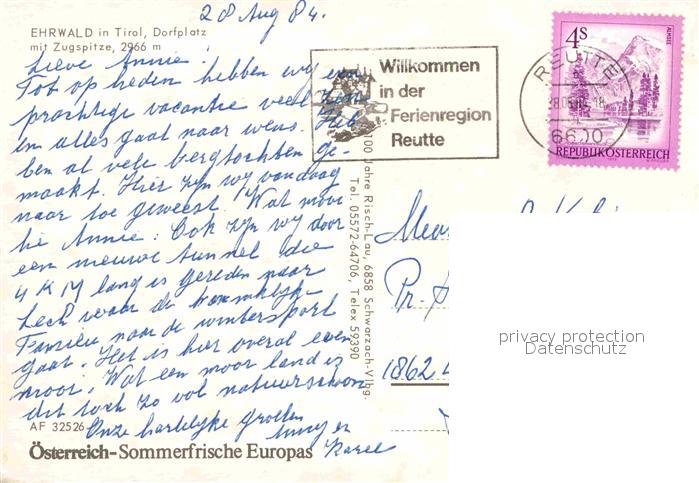 28 Aug 84.
EHRWALD in Tirol, Dorfplatz
mit Zugspitze, 2966 m
Lieve Annie!
Tot op heden hebben wy een
prachtige vacantie veel zon
en alles gaat naar wens. Heb
ben al vele bergtochten ge-
maakt. Hier zyn wy vandaag
naar toe geweest. Wat mooi
hie Annie: Ook zyn wy door
een nieuwe tunnel die
4 KM lang is gereden naar
Lech waar de
Familie naar de wintersport
gaat. Het is hier overal even
mooi! Wat een mooi land is
dit toch zo vol natuurschoon
Onze hartelyke groeten
en
Karel
AF 32526
Österreich-Sommerfrische Europas
100 Jahre Risch-Lau, 6858 Schwarzach-Vlbg.
Tel. 05572-64706, Telex 59390
Willkommen
in der
Ferienregion
Reutte
REUTTE
6600
4S
ALMSEE
REPUBLIK ÖSTERREICH
Pr.
1862
privacy protection
Datenschutz